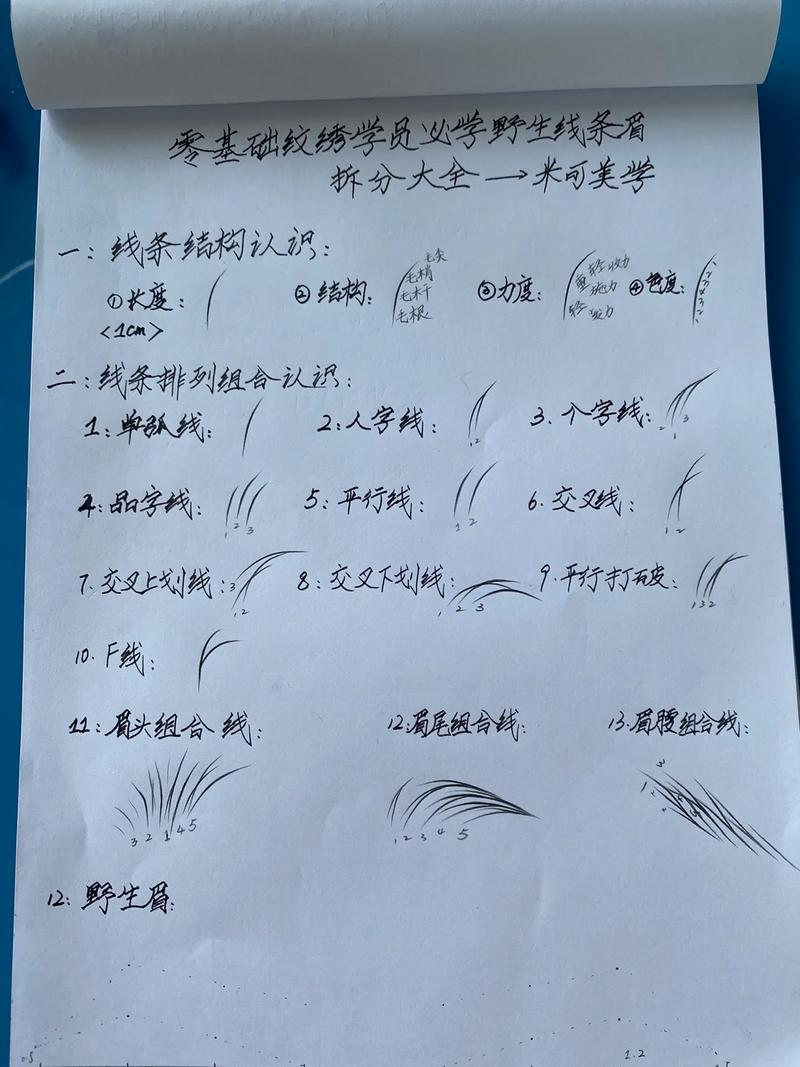 零基础纹绣学员必学野生线条眉
拆分大全→米可美学
一:线条结构认识:
①长度: ②结构: 毛尖 毛梢 毛杆 毛根 ③力度: 轻 收力 重 施力 轻 ④色度: 1 2 3 4 3 2 1
<1cm>
二:线条排列组合认识:
1:单弧线: 2:人字线: 1 2 3、个字线: 2 1 3
4:品字线: 1 2 3 5:平行线: 1 2 6、交叉线: 1 2
7、交叉上划线: 3 1 2 8:交叉下划线: 1 2 3 9、平行打破: 1 3 2
10、F线:
11:眉头组合线: 12:眉尾组合线: 13、眉腰组合线:
3 2 1 4 5 1 2 3 4 5
12:野生眉:
0.5 1.2